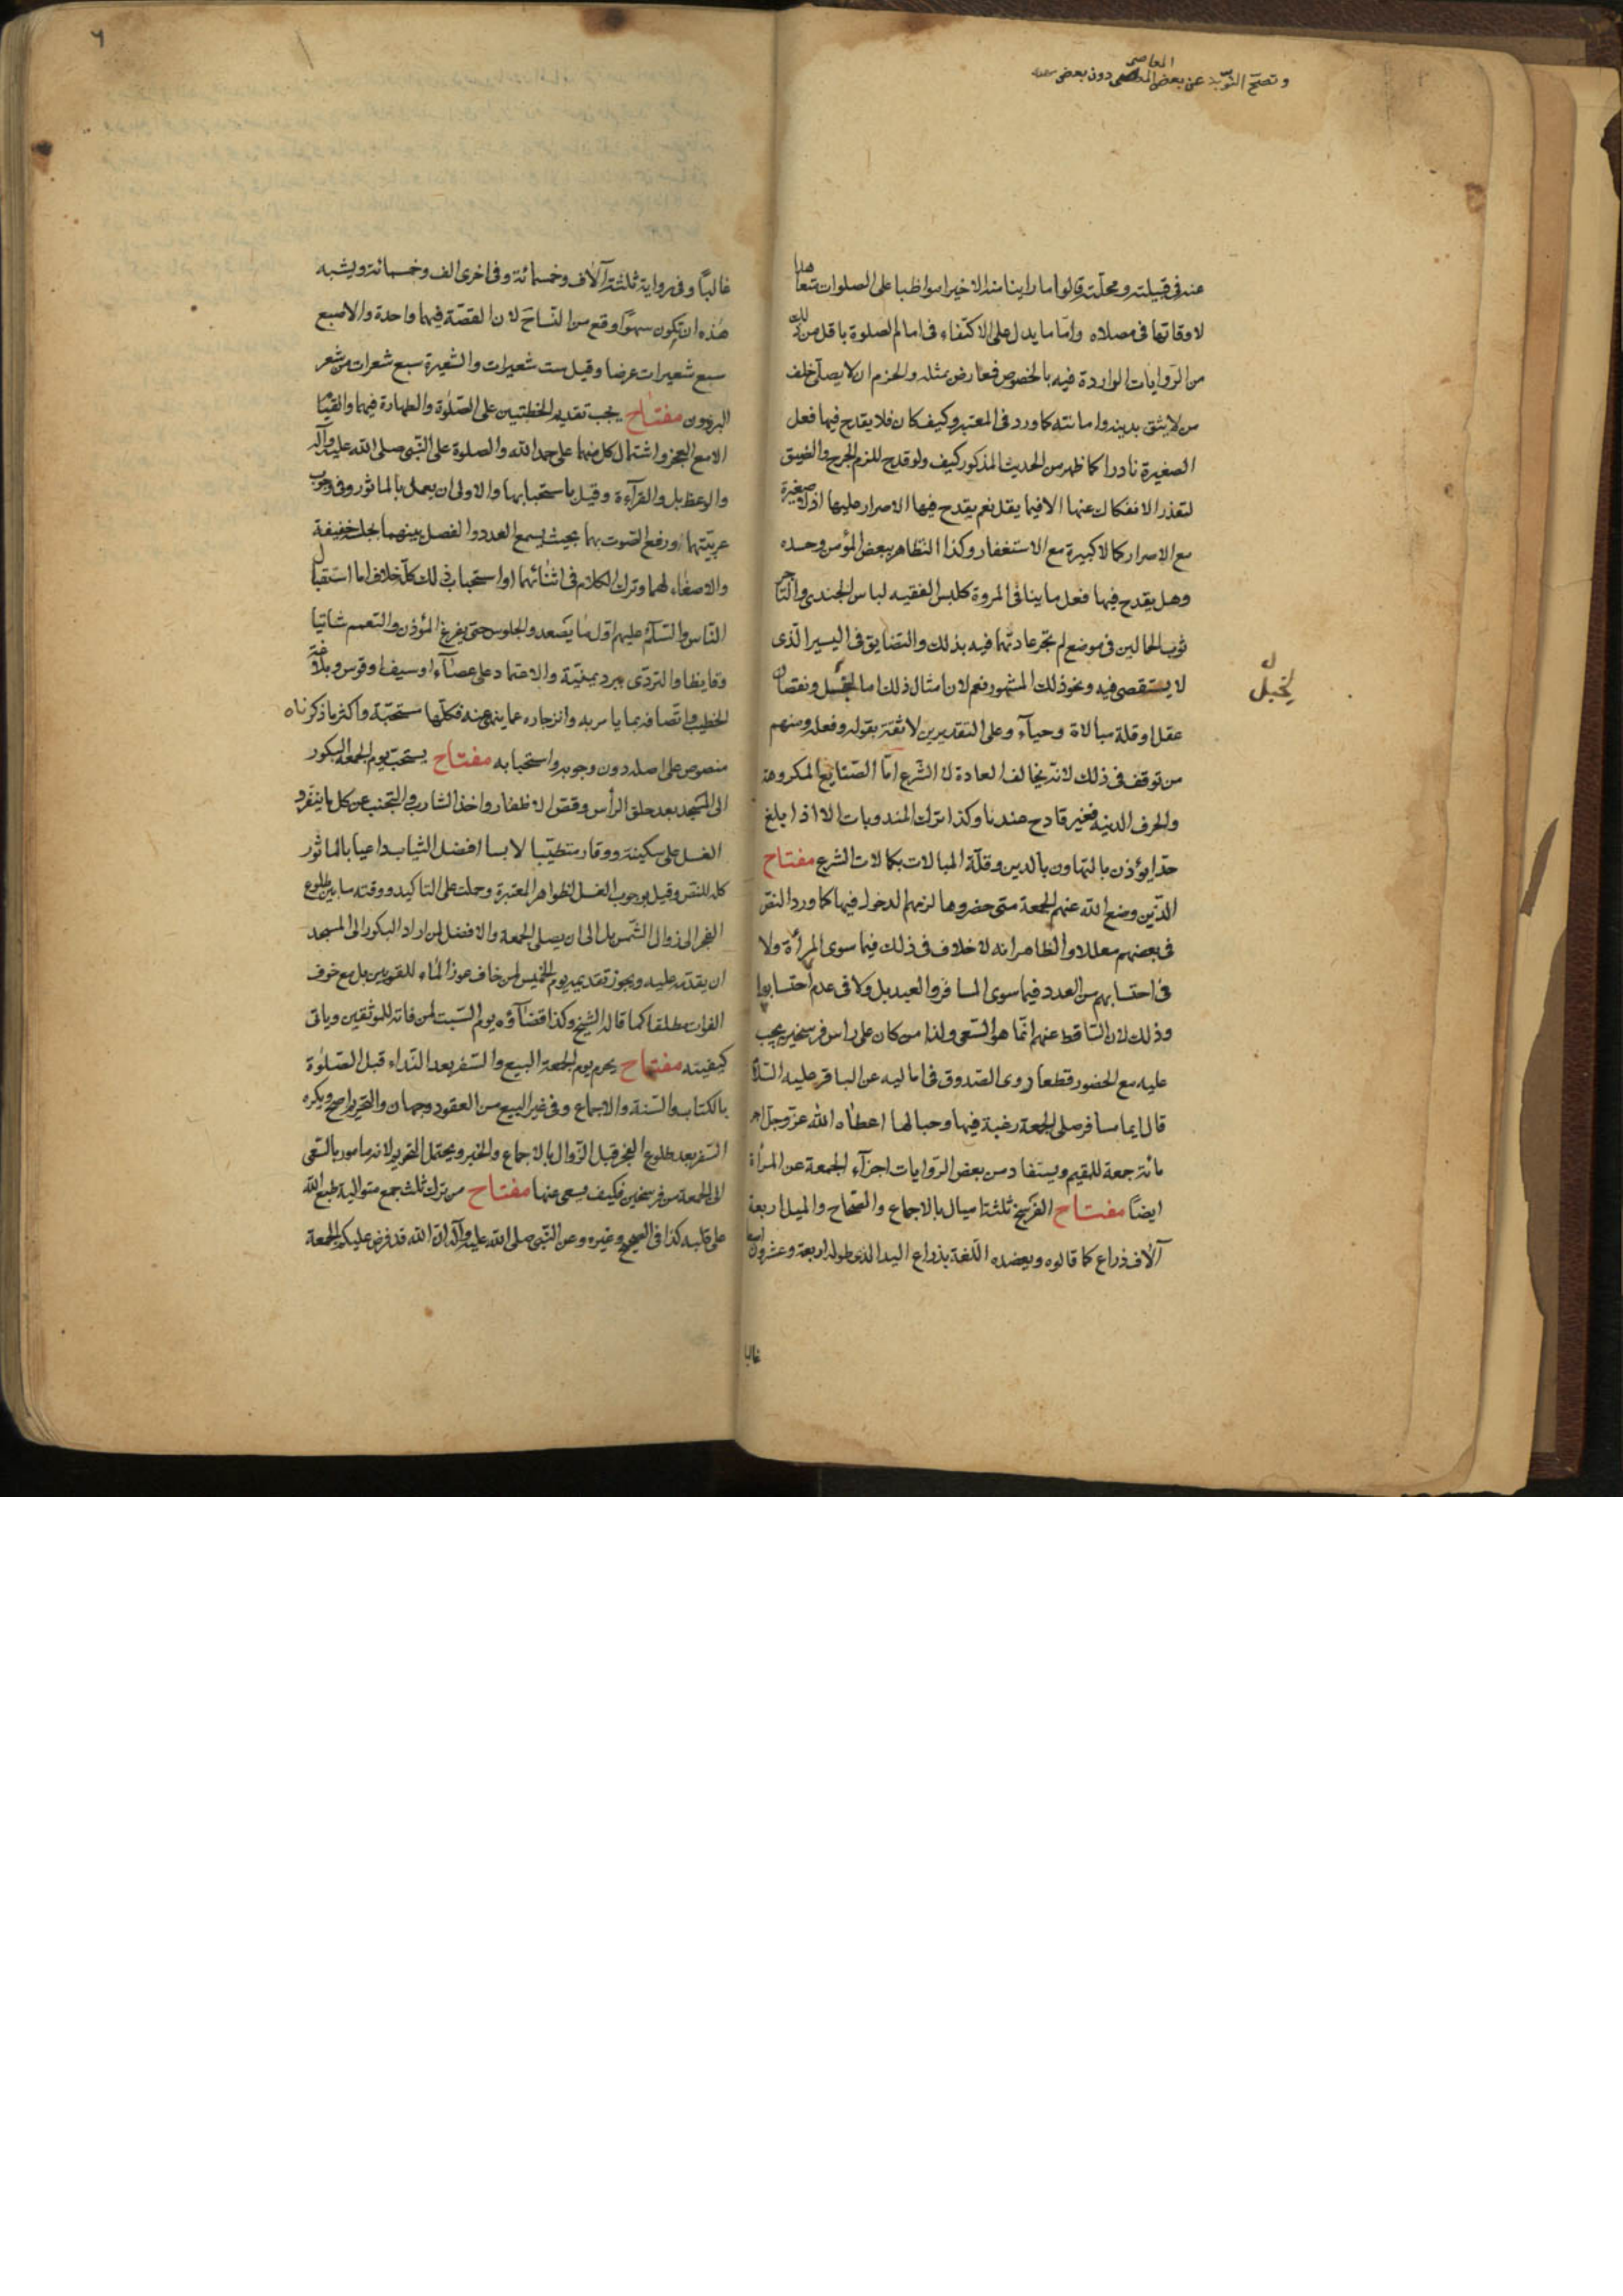 المعاصى
و تصحّ التوبة عن بعض المعاصى دون بعض
عنه فى قبيلته و محلّته قالوا ما راينا منه الا خيرا مواظبا على الصلوات متعاهدا
لاوقاتها فى مصلاه وامّا ما يدل على الاكتفاء فى امام الصلوة باقل من ذلك
من الرّوايات الواردة فيه بالخصوص فمعارض بمثله والحزم ان لا يصلّى خلف
من لا يثق بدينه وامانته كما ورد فى المعتبر وكيف كان فلا يقدح فيها فعل
الصغيرة نادرا كما ظهر من الحديث المذكور كيف ولو قدح للزم الحرج والضيق
لتعذر الانفكاك عنها الا فيما يقل نعم يقدح فيها الاصرار عليها اذ لا صغيرة
مع الاصرار كما لا كبيرة مع الاستغفار وكذا التظاهر ببعض المؤمن وحسده
وهل يقدح فيها فعل ما ينافى المروة كلبس الفقيه لباس الجندى والتاجر
ثوب الحمالين فى موضع لم تجر عادتهما فيه بذلك والتضايق فى اليسير الّذى
لا يستقصى فيه ونحو ذلك المشهور نعم لان امثال ذلك اما لخبل ونقصان
لخبل
عقل او قلة مبالاة وحيآء وعلى التقديرين لا ثقة بقوله وفعله ومنهم
من توقف فى ذلك لانّه يخالف العادة لا الشّرع امّا الصّنايع المكروهة
والحرف الدنية فغير قادح عندنا وكذا ترك المندوبات الا اذا بلغ
حدّا يؤذن بالتهاون بالدين وقلّة المبالات بكمالات الشرع مفتاح
الّذين وضع الله عنهم الجمعة متى حضروها لزمهم الدخول فيها كما ورد النصّ
فى بعضهم معللا والظاهر انه لا خلاف فى ذلك فيما سوى المرأة ولا
فى احتسابهم من العدد فيما سوى المسافر والعبد بل ولا فى عدم احتسابها
وذلك لان السّاقط عنهم انّما هو السّعى ولذا من كان على راس فرسخين يجب
عليه مع الحضور قطعا روى الصّدوق فى اماليه عن الباقر عليه السّلام
قال ايما مسافر صلى الجمعة رغبة فيها وحبا لها اعطاه الله عزّ وجلّ اجر
مائة جمعة للمقيم ويستفاد من بعض الرّوايات اجزآء الجمعة عن المرأة
ايضًا مفتاح الفرسخ ثلثة اميال بالاجماع والصّحاح والميل اربعة
آلاف ذراع كما قالوه ويعضده اللّغة بذراع اليد الّذى طوله اربعة وعشرون اصبعا
غالبا
غالبًا وفى رواية ثلثة آلاف وخمسمائة وفى اخرى الف وخمسمائة ويشبه
هذه ان تكون سهوًا وقع من النّساخ لان القصّة فيهما واحدة والاصبع
سبع شعيرات عرضا وقيل ست شعيرات والشعيرة سبع شعرات من شعر
البرذون مفتاح يجب تقديم الخطبتين على الصّلوة والطهارة فيهما والقيام
الا مع العجز واشتمال كل منهما على حمد الله والصلوة على النّبى صلى الله عليه وآله
والوعظ بل والقرآءة وقيل باستحبابها والاولى ان يعمل بالماثور وفى وجوب
عربيّتهما ورفع الصّوت بهما بحيث يسمع العدد والفصل بينهما بجلسة خفيفة
والاصغاء لهما وترك الكلام فى اثنائهما او استحباب ذلك كلّه خلاف اما استقبال
النّاس والسّلام عليهم اوّل ما يصعد والجلوس حتى يفرغ المؤذن والتعمم شاتيا
وقايظا والتردّى ببرد يمنيّة والاعتماد على عصآء او سيف او قوس وبلاغة
الخطيب واتّصافه بما يامر به وانزجاره عما ينهى عنه فكلّها مستحبّة واكثر ما ذكرناه
منصوص على اصله دون وجوبه واستحبابه مفتاح يستحب يوم الجمعة البكور
الى المسجد بعد حلق الرأس وقصّ الاظفار واخذ الشارب والتجنب عن كل ما ينفر و
الغسل على سكينة ووقار متطيّبا لابسا افضل الثياب داعيا بالماثور
كله للنص وقيل بوجوب الغسل لظواهر المعتبرة وحملت على التاكيد ووقته ما بين طلوع
الفجر الى زوال الشّمس بل الى ان يصلى الجمعة والافضل لمن اراد البكور الى المسجد
ان يقدّمه عليه ويجوز تقديمه يوم الخميس لمن خاف عوز المآء للقويين بل مع خوف
الفوات مطلقا كما قاله الشيخ وكذا قضآؤه يوم السّبت لمن فاته للموثقين وياتى
كيفيته مفتاح يحرم يوم الجمعة البيع والسّفر بعد النّداء قبل الصّلوة
بالكتاب والسّنة والاجماع وفى غير البيع من العقود وجهان والتحريم اصح ويكره
السّفر بعد طلوع الفجر وقبل الزّوال بالاجماع والخبر ويحتمل التحريم لانه مامور بالسّعى
الى الجمعة من فرسخين فكيف يسعى عنها مفتاح من ترك ثلث جمع متوالية طبع الله
على قلبه كذا فى الصحيح وغيره وعن النّبى صلى الله عليه وآله انّ الله قد فرض عليكم الجمعة